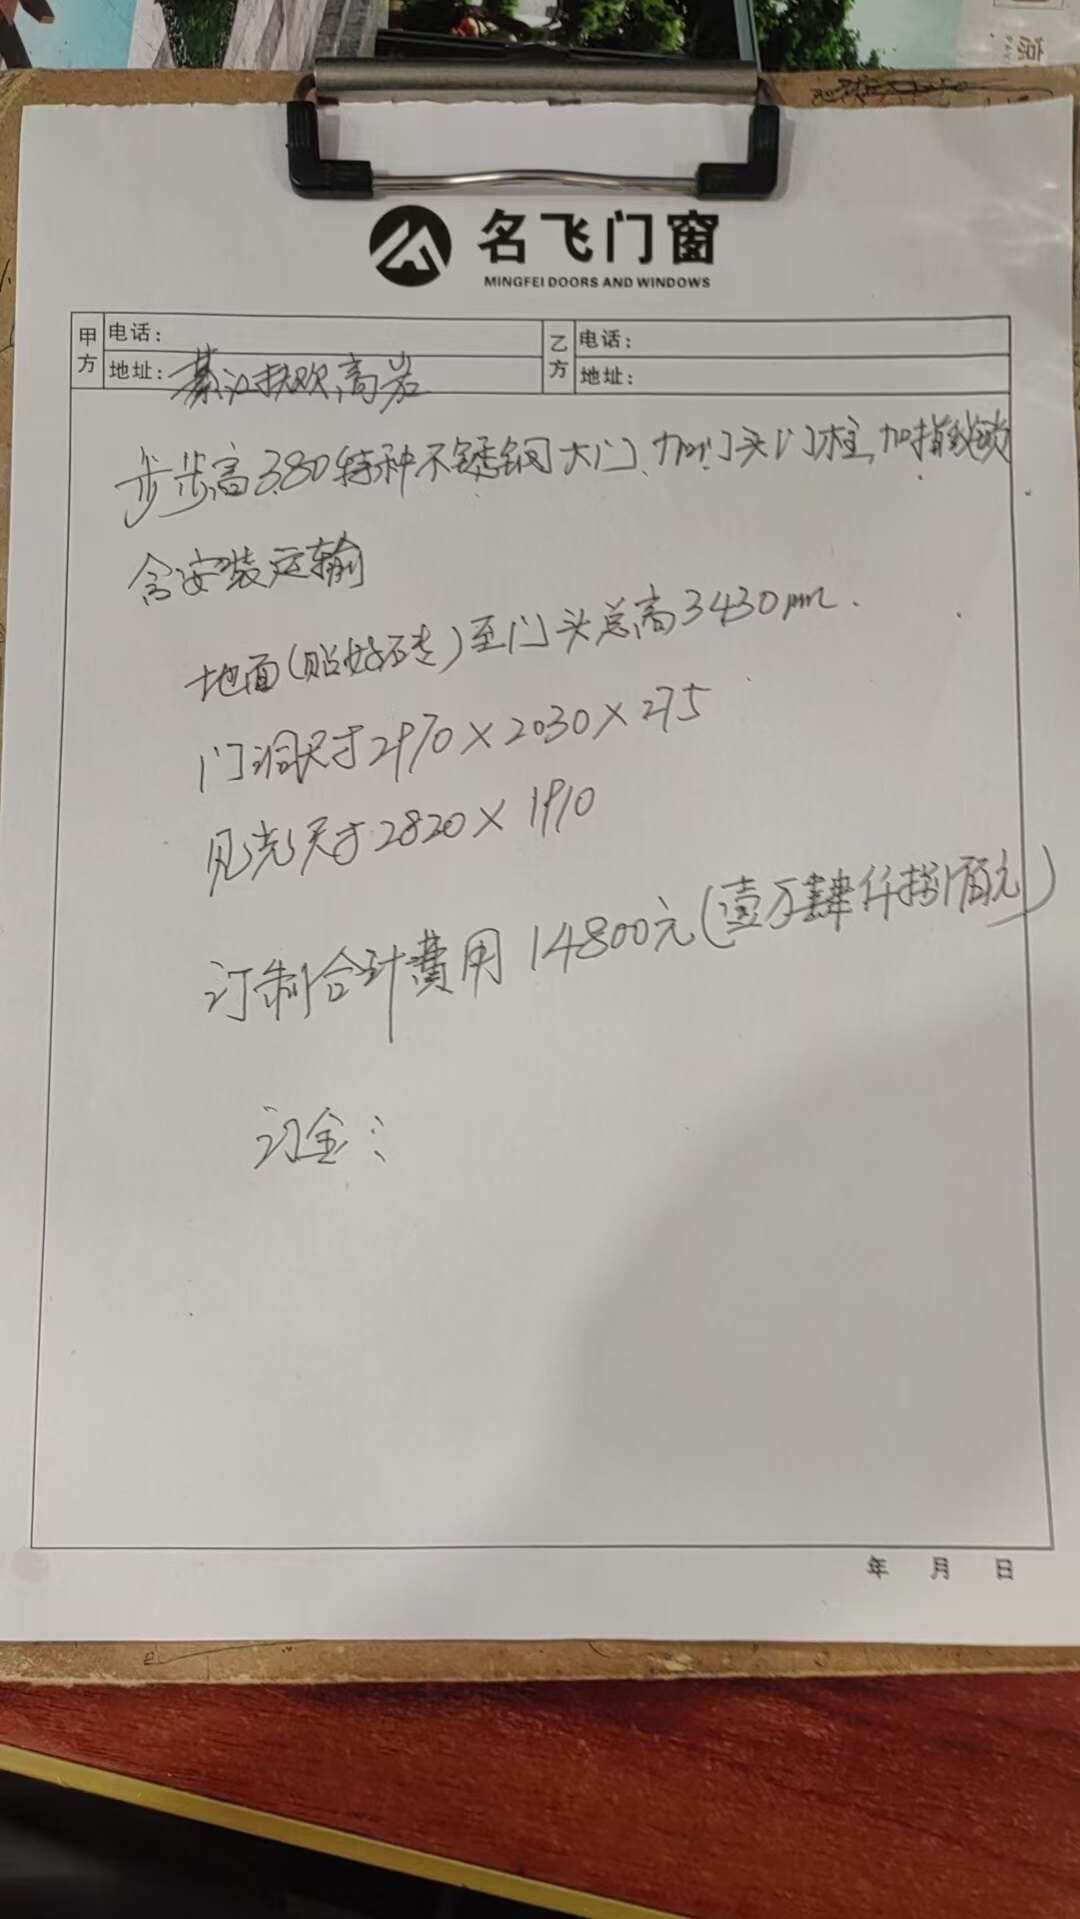 名飞门窗
MINGFEI DOORS AND WINDOWS
甲方 电话： 乙方 电话：
地址：綦江扶欢高岩 地址：
步步高380特种不锈钢大门、加门头门柱,加指纹锁
含安装运输
地面(贴好砖)至门头总高3430mm.
门洞尺寸2970×2030×275
见光尺寸2820×1910
订制合计费用14800元(壹万肆仟捌佰元)
订金：
年 月 日